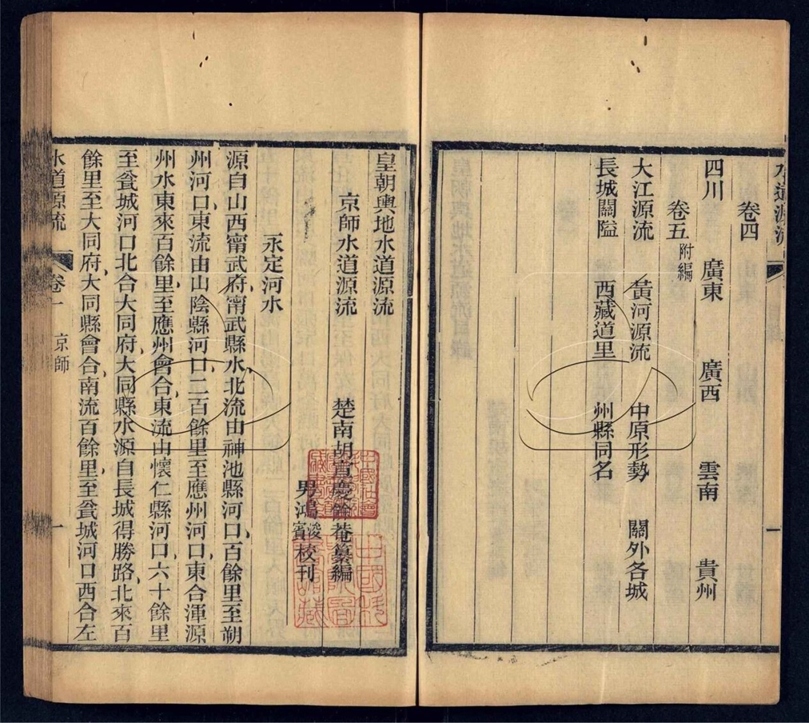 水道源流
卷四
四川 廣東 廣西 雲南 貴州
卷五附編
大江源流 黃河源流 中原形勢 關外各城
長城關隘 西藏道里 州縣同名
一
皇朝輿地水道源流
京師水道源流
楚南胡宣慶餘菴纂編
男鴻賓校刊
永定河水
源自山西甯武府甯武縣水北流由神池縣河口百餘里至朔
州河口東流由山陰縣河口二百餘里至應州河口東合渾源
州水東來百餘里至應州會合東流由懷仁縣河口六十餘里
至瓮城河口北合大同府大同縣水源自長城得勝路北來百
餘里至大同府大同縣會合南流百餘里至瓮城河口西合左
水道源流 卷一 京師 一